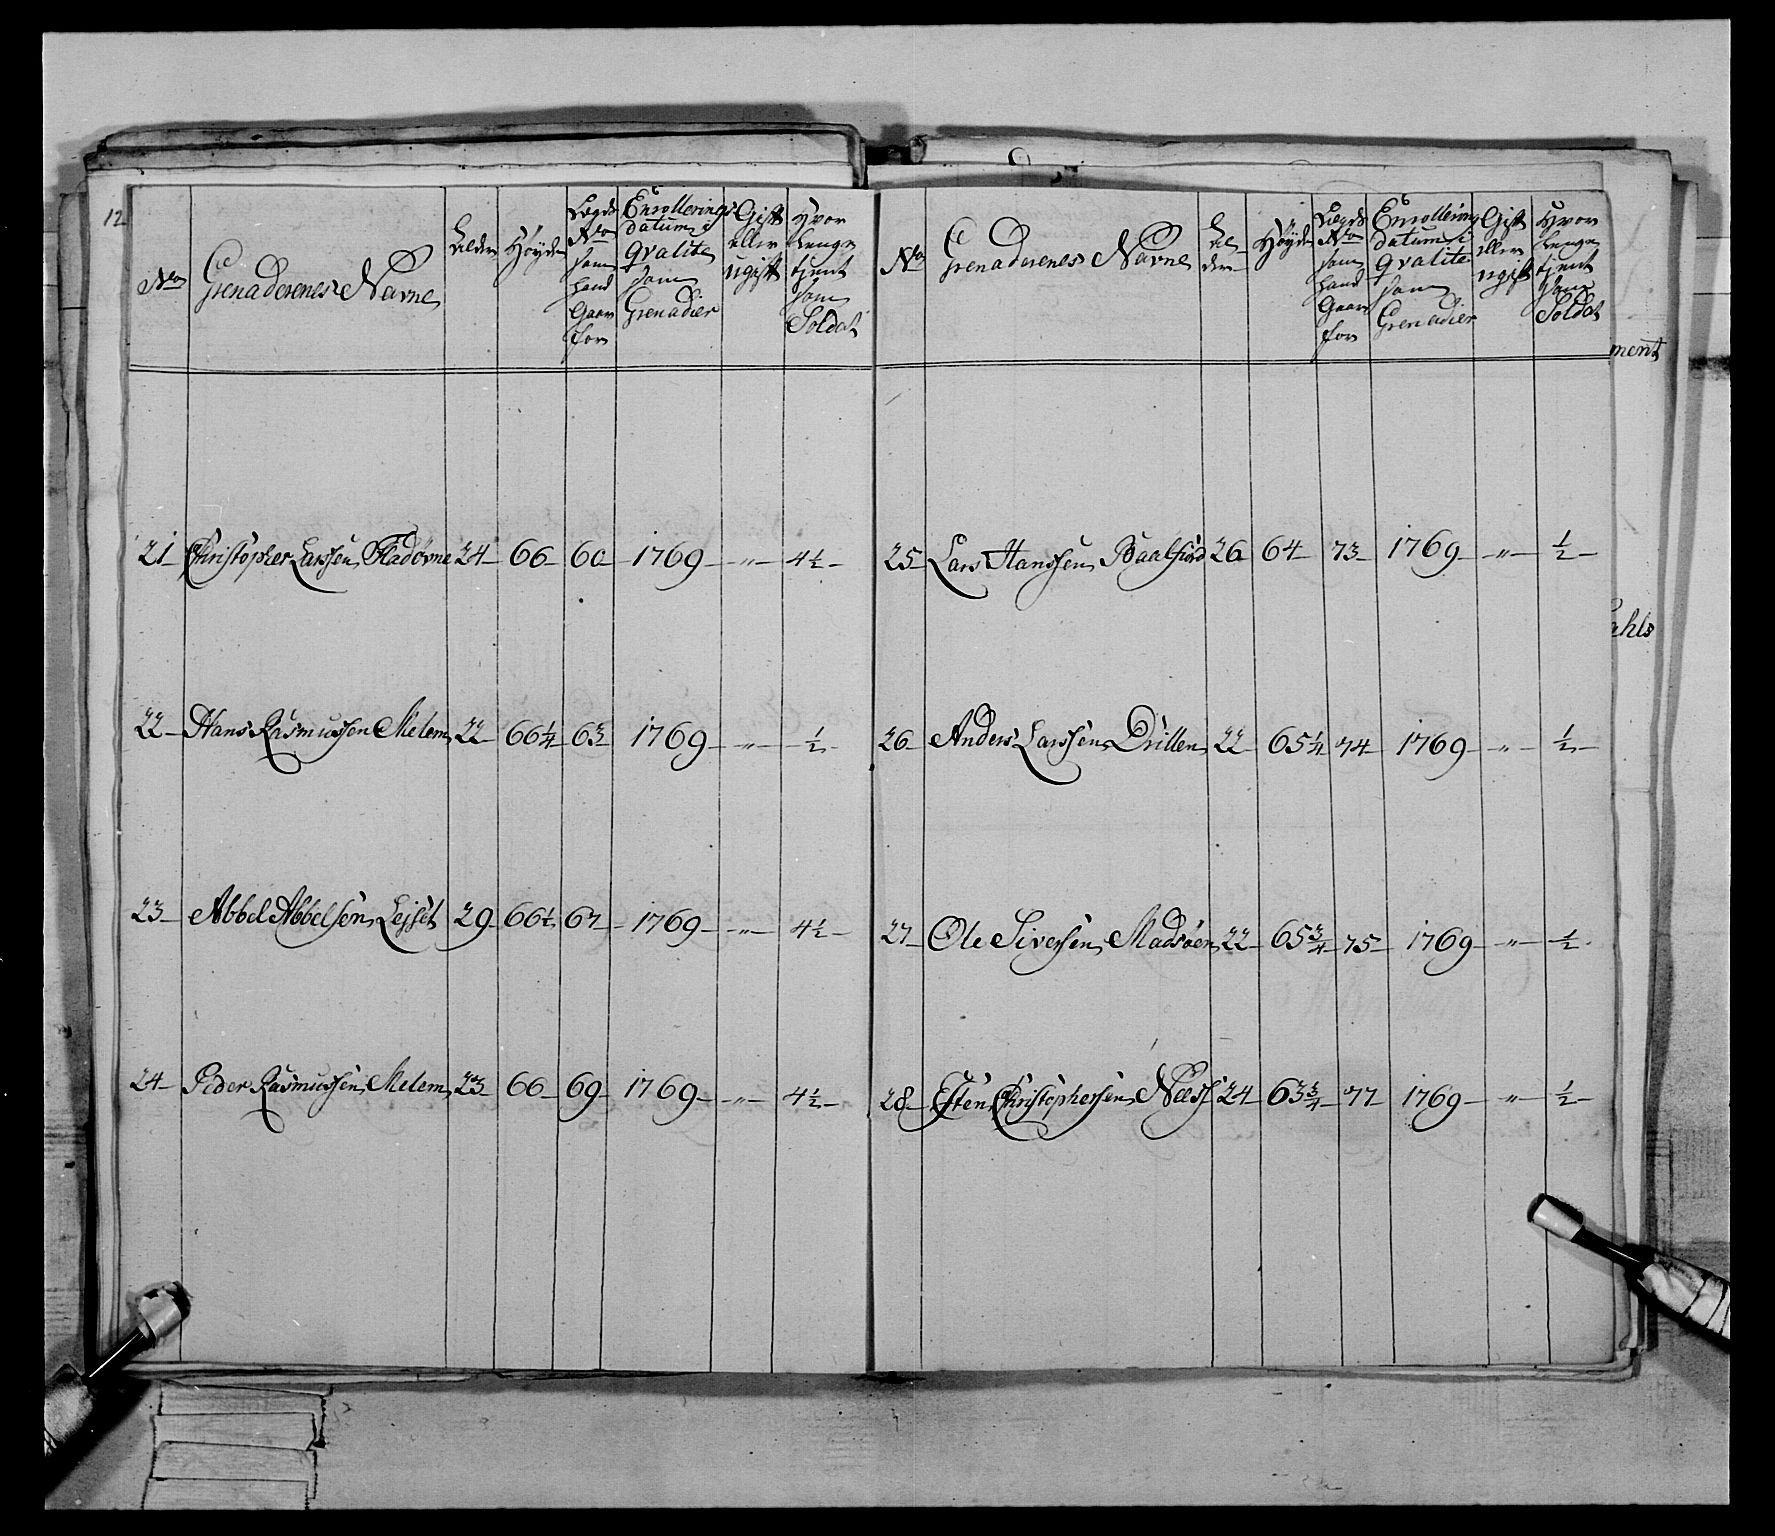 12
No
Grenaderenes Navne
Alder
Høyde
Lægds
No
som
hand
Gaar
for
Enrollerings
datum i
Qvalite
som
Grenadier
Gift
eller
ugift
Hvor
længe
tjent
som
Soldat
21 Christopher Larssen Fladørne 24 66 60 1769 " 4½
22 Hans Rasmussen Melem 22 66¼ 63 1769 " ½
23 Abbel Abbelsen Lejset 29 66½ 67 1769 " 4½
24 Peder Rasmussen Melem 23 66 69 1769 " 4½
No
Grenaderenes Navne
Al
der
Høyde
Lægds
No
som
hand
Gaar
for
Enrollerings
datum i
Qvalite
som
Grenadier
Gift
eller
ugift
Hvor
længe
tjent
som
Soldat
25 Lars Hanssen Baalsiord 26 64 73 1769 " ½
26 Anders Larssen Drillen 22 65¼ 74 1769 " ½
27 Ole Siversen Madsøen 22 65¾ 75 1769 " ½
28 Esten Christophersen Næss 24 63¾ 77 1769 " ½
ment
ahls